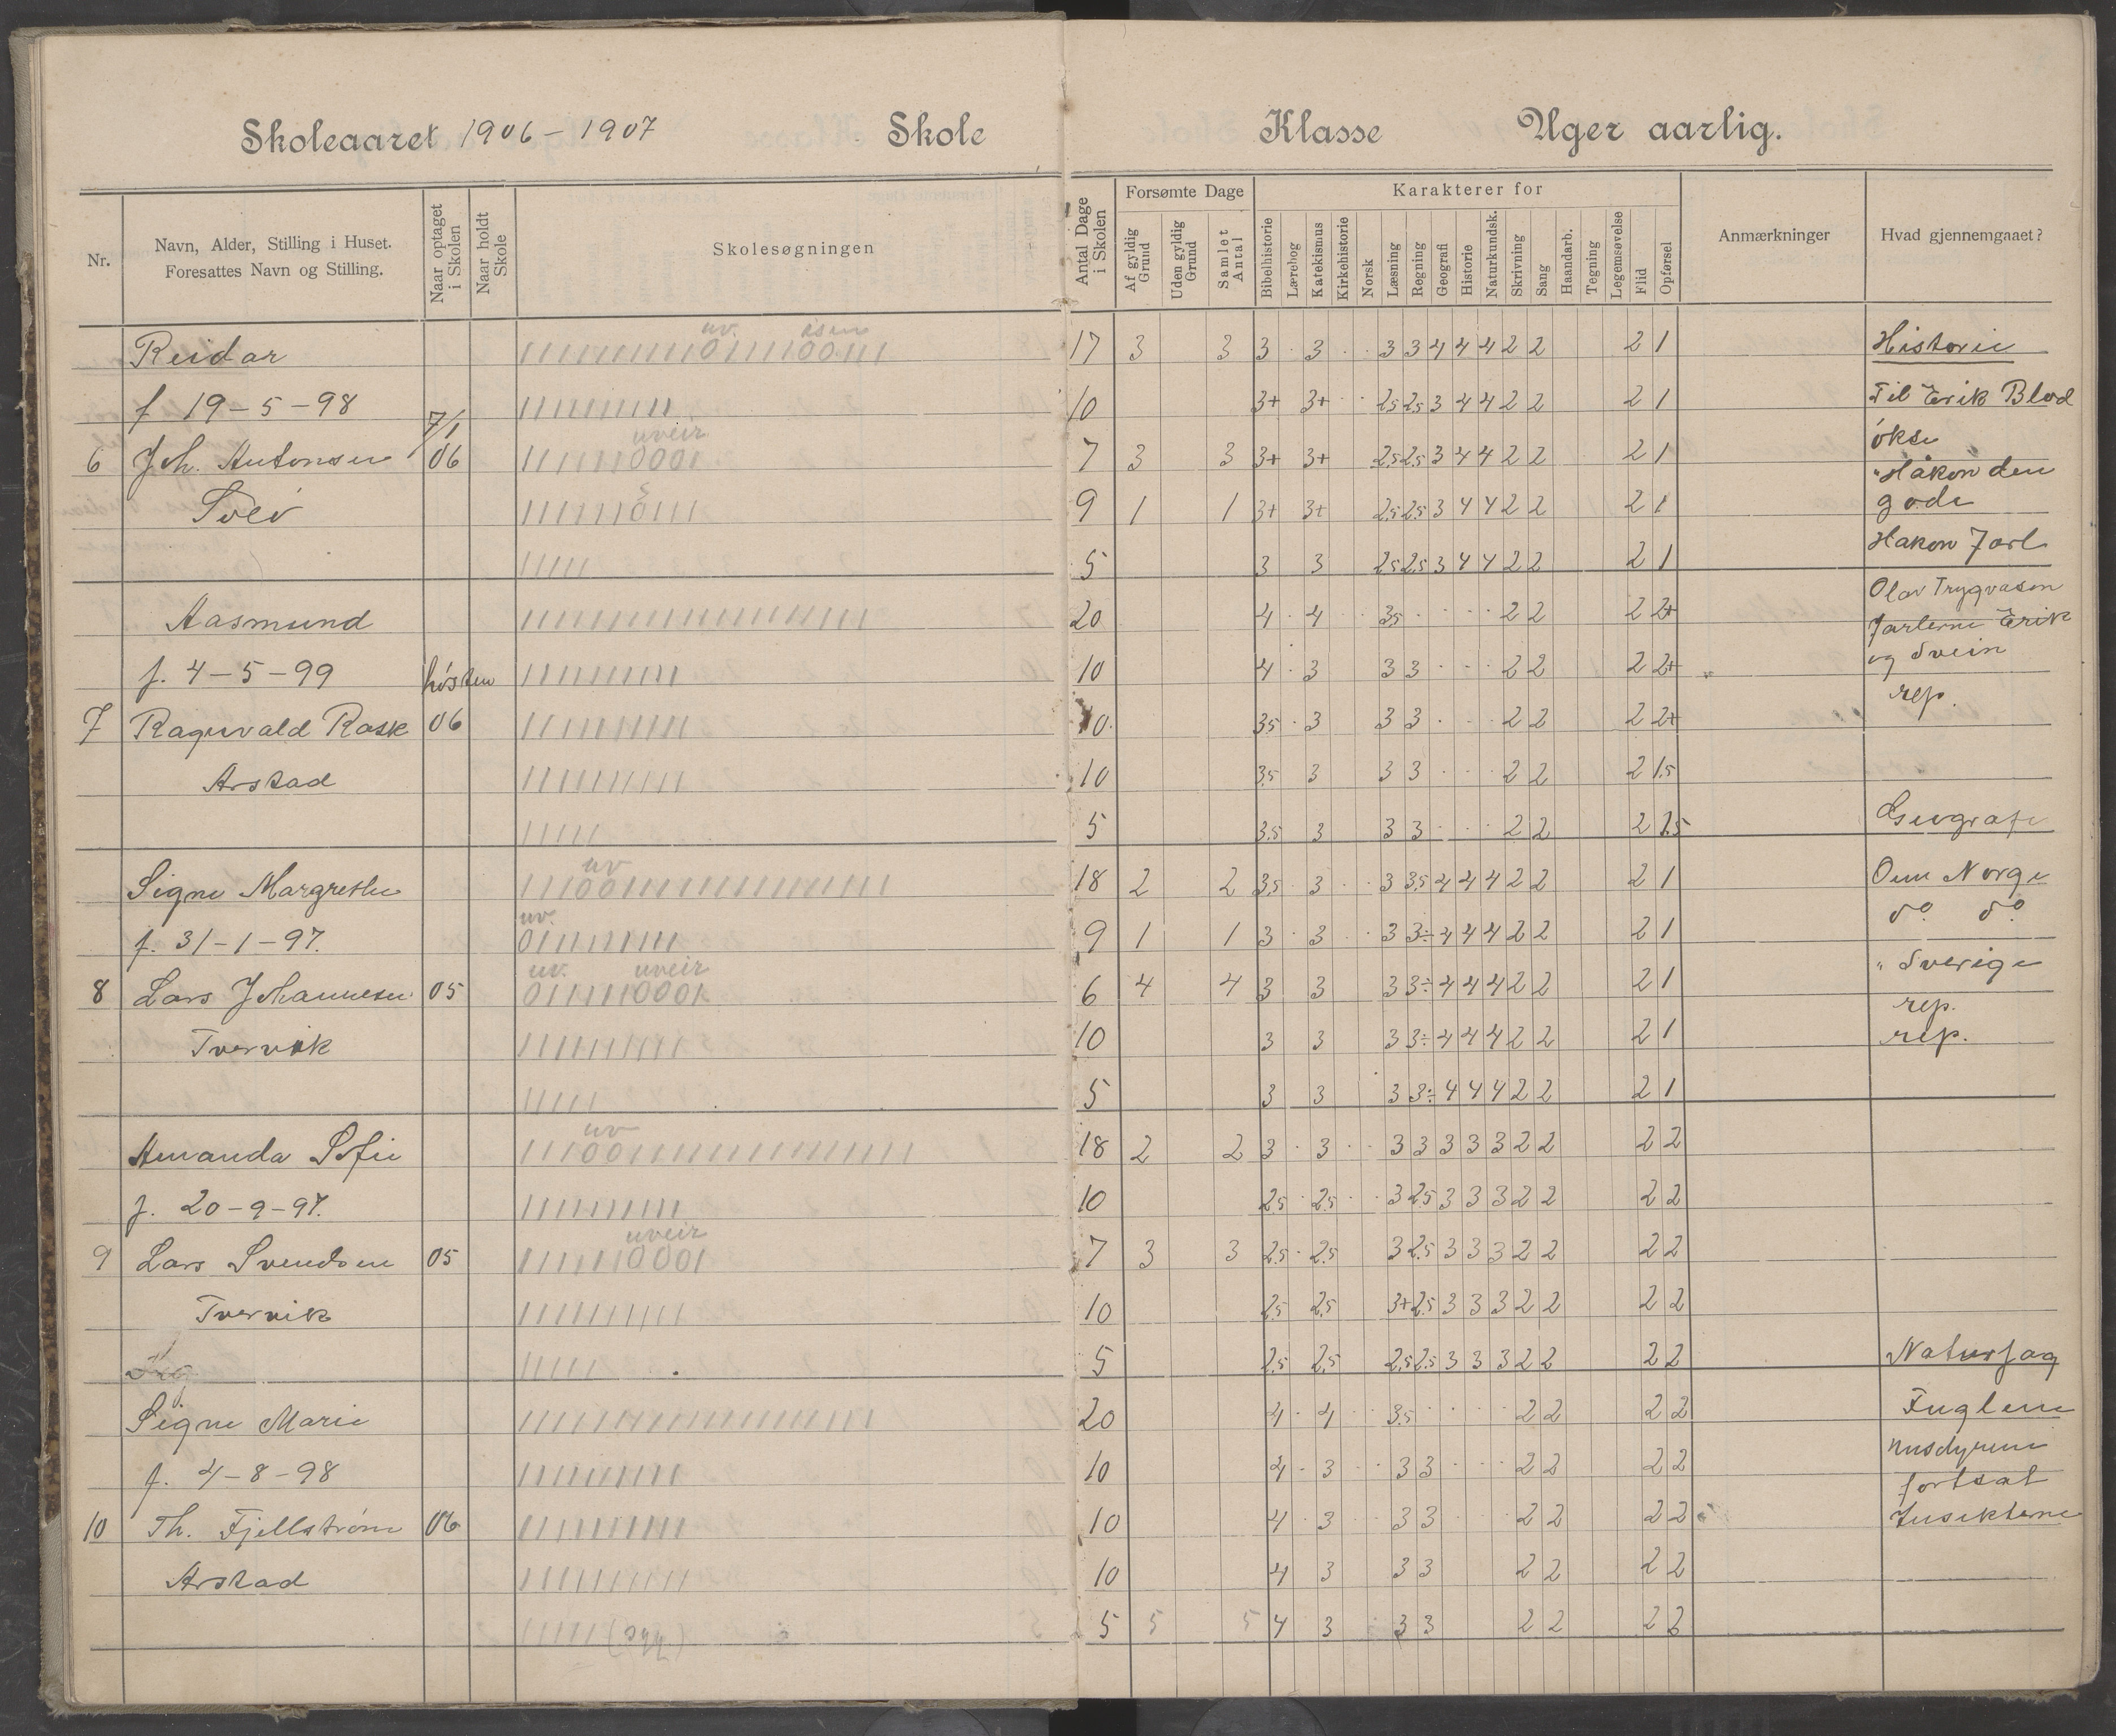 Skoleaaret 1906-1907 Skole Klasse Uger aarlig.
Nr.
Navn, Alder, Stilling i Huset.
Foresattes Navn og Stilling.
Naar optaget i Skolen
Naar holdt Skole
Skolesøgningen
Antal Dage i Skolen
Forsømte Dage
Af gyldig Grund
Uden gyldig Grund
Samlet Antal
Karakterer for
Bibelhistorie
Lærebog
Katekismus
Kirkehistorie
Norsk
Læsning
Regning
Geografi
Historie
Naturkundsk.
Skrivning
Sang
Haandarb.
Tegning
Legemsøvelse
Flid
Opførsel
Anmærkninger
Hvad gjennemgaaet?
uv.
Reidar 17 3 3 3 3 3 3 4 4 4 2 2 2 1
f 19-5-98 10 3+ 3+ 2,5 2,5 3 4 4 2 2 2 1
7/1
uveir
6 Joh. Antonsen 06 7 3 3 3+ 3+ 2,5 2,5 3 4 4 2 2 2 1
9 1 1 3+ 3+ 2,5 2,5 3 4 4 2 2 2 1
5 3 3 2,5 2,5 3 4 4 2 2 2 1
Aasmund 20 4 4 3,5 2 2 2 2+
f. 4-5-99 høsten 10 4 3 3 3 2 2 2 2+
7 Ragnvald Rask 06 10 3,5 3 3 3 2 2 2 2+
Arstad 10 3,5 3 3 3 2 2 2 1,5
5 3,5 3 3 3 2 2 2 1,5
uv
Signe Margrethe 18 2 2 3,5 3 3 3,5 4 4 4 2 2 2 1
uv.
f. 31-1-97. 9 1 1 3 3 3 3÷ 4 4 4 2 2 2 1
uv. uveir
8 Lars Johannesen 05 6 4 4 3 3 3 3÷ 4 4 4 2 2 2 1
Tvervik 10 3 3 3 3÷ 4 4 4 2 2 2 1
5 3 3 3 3÷ 4 4 4 2 2 2 1
uv
Amanda Sofie 18 2 2 3 3 3 3 3 3 3 2 2 2 2
f. 20-9-97. 10 2,5 2,5 3 2,5 3 3 3 2 2 2 2
uveir
9 Lars Svendsen 05 7 3 3 2,5 2,5 3 2,5 3 3 3 2 2 2 2
Tvervik 10 2,5 2,5 3+ 2,5 3 3 3 2 2 2 2
5 2,5 2,5 2,5 2,5 3 3 3 2 2 2 2
Signe Marie 20 4 4 3,5 2 2 2 2
f. 4-8-98 10 4 3 3 3 2 2 2 2
10 Th. Fjellstrøm 06 10 4 3 3 3 2 2 2 2
Arstad 10 4 3 3 3 2 2 2 2
(syk) 5 5 5 4 3 3 3 2 2 2 2
Historie
Til Erik Blod
økse
"Håkon den
gode
Hakon Jarl
Olav Trygvason
Jarlerne Erik
og Svein
rep.
Geografi
Om Norge
do do
" Sverige
rep.
rep.
Naturfag
Fuglene
fortsat
Insekterne